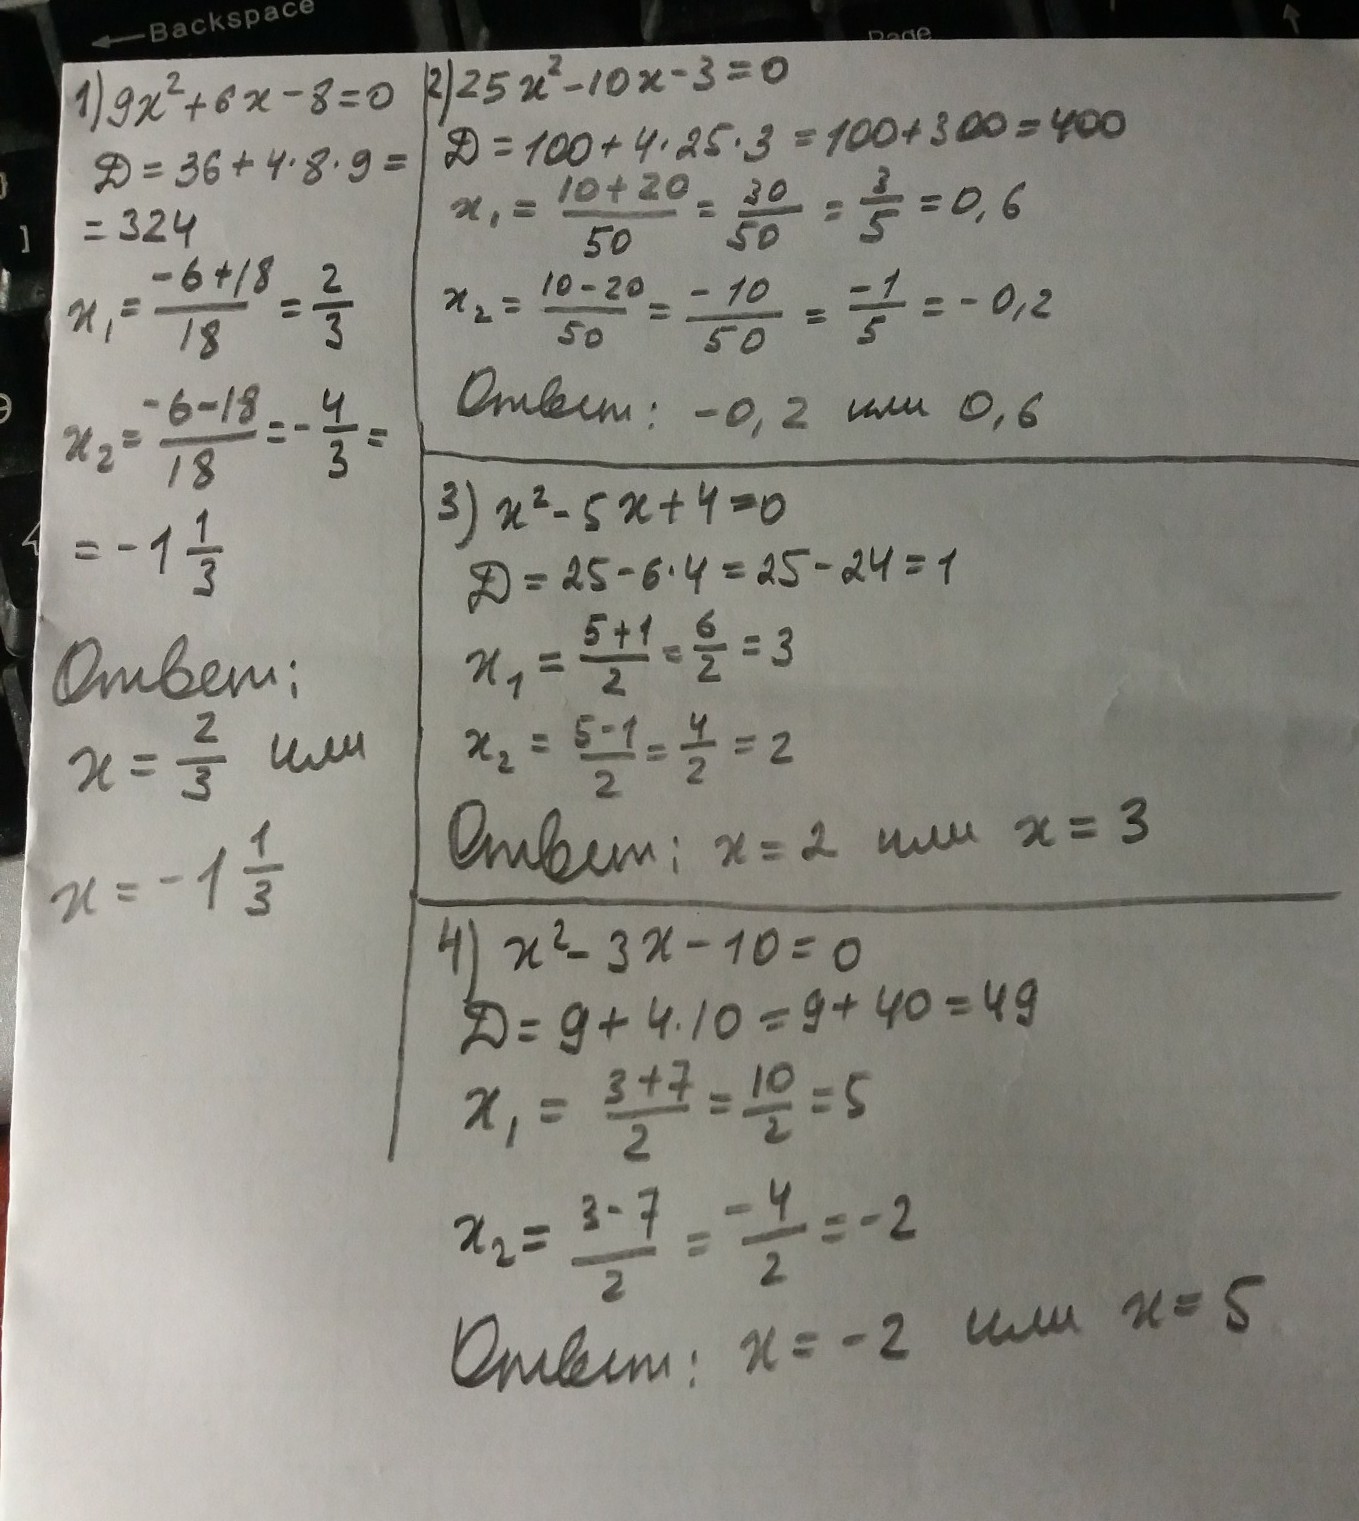 ← Backspace
Page
1) 9x² + 6x - 8 = 0
D = 36 + 4·8·9 =
= 324
x₁ = (-6+18)/18 = 2/3
x₂ = (-6-18)/18 = -4/3 =
= -1 1/3
Ответ:
x = 2/3 или
x = -1 1/3
2) 25x² - 10x - 3 = 0
D = 100 + 4·25·3 = 100 + 300 = 400
x₁ = (10+20)/50 = 30/50 = 3/5 = 0,6
x₂ = (10-20)/50 = -10/50 = -1/5 = -0,2
Ответ: -0,2 или 0,6
3) x² - 5x + 4 = 0
D = 25 - 6·4 = 25 - 24 = 1
x₁ = (5+1)/2 = 6/2 = 3
x₂ = (5-1)/2 = 4/2 = 2
Ответ: x = 2 или x = 3
4) x² - 3x - 10 = 0
D = 9 + 4·10 = 9 + 40 = 49
x₁ = (3+7)/2 = 10/2 = 5
x₂ = (3-7)/2 = -4/2 = -2
Ответ: x = -2 или x = 5